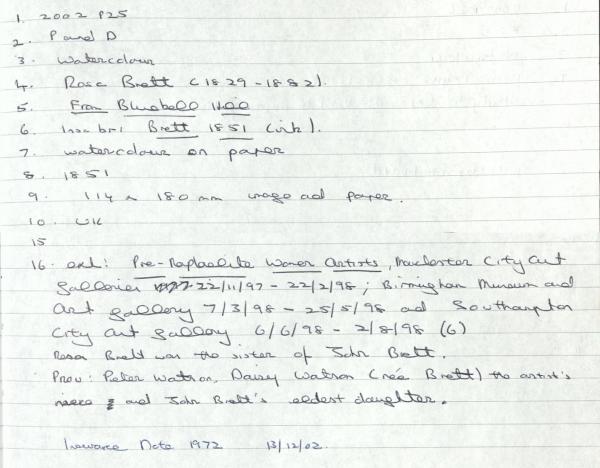 1. 2002 P25
2. P and D
3. Watercolour
4. Rosa Brett (1829-1882).
5. From Bluebell Hill
6. Inscbr: Brett 1851 (ink).
7. watercolour on paper
8. 1851
9. 114 x 180 mm image and paper.
10. UK
15
16. exh: Pre-Raphaelite Women Artists, Manchester City Art
Galleries 22/11/97 - 22/2/98; Birmingham Museum and
Art gallery 7/3/98 - 25/5/98 and Southampton
City Art Gallery 6/6/98 - 2/8/98 (6)
Rosa Brett was the sister of John Brett.
Prov: Peter Watson, Daisy Watson (née Brett) the artist's
niece and John Brett's eldest daughter.
Date 1972 13/12/02.